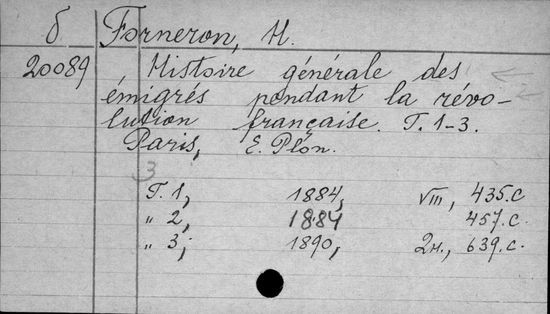 б Forneron, H.
20089 Histoire générale des
émigrés pendant la révo-
lution française. T. 1-3.
Paris, E. Plon.
3
T. 1, 1884, VIII, 435.c
" 2, 1884 457.c
" 3, 1890, 2н., 639.c.